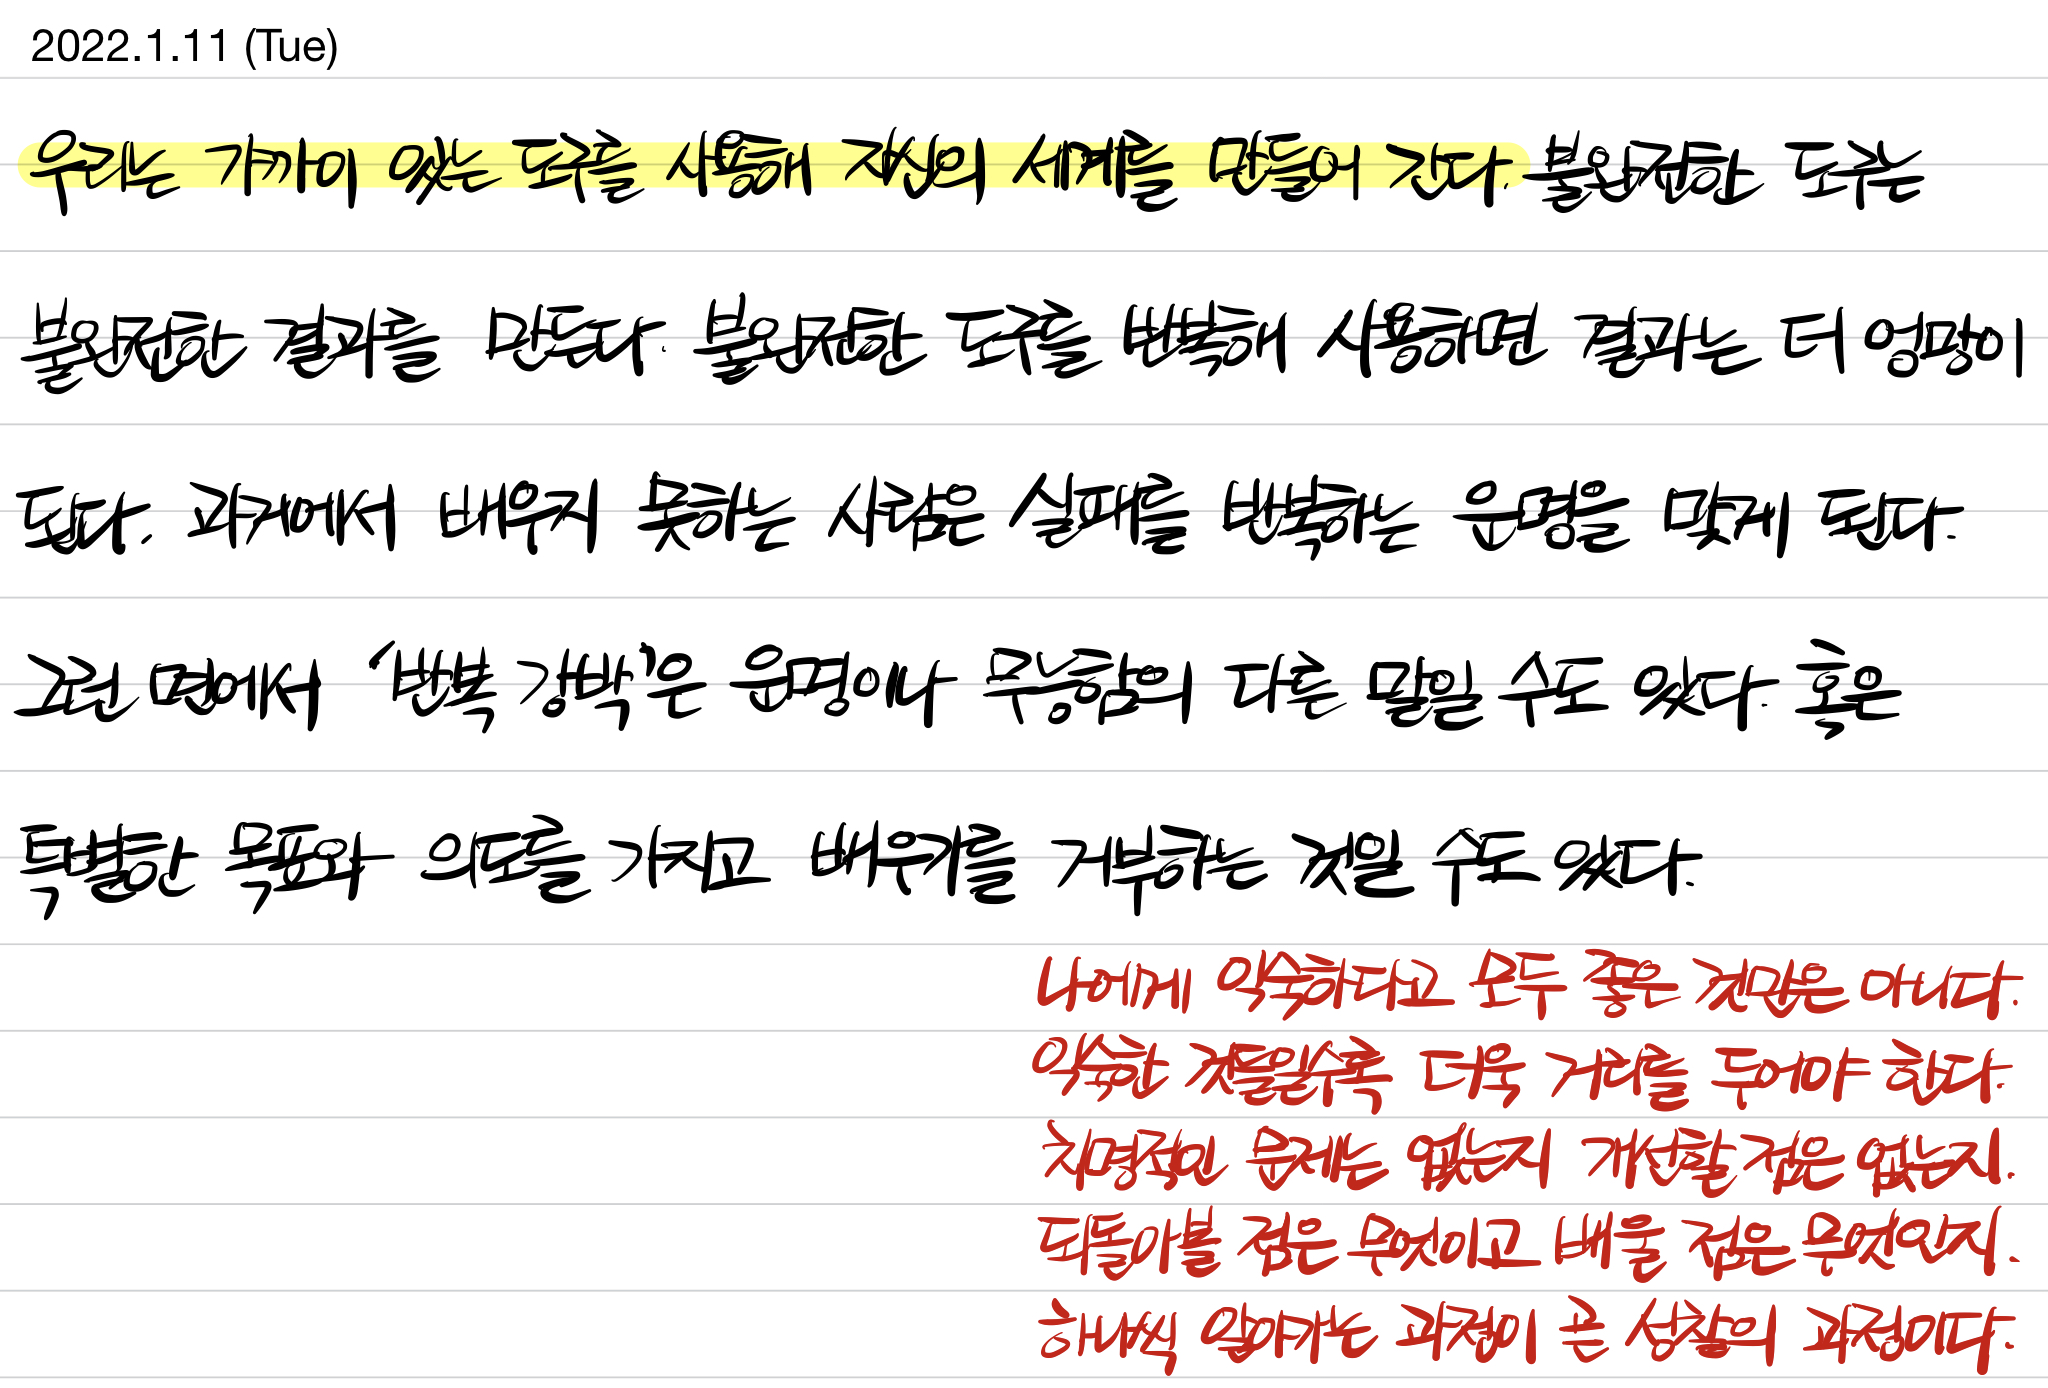 2022.1.11 (Tue)
우리는 가까이 있는 도구를 사용해 자신의 세계를 만들어 간다. 불완전한 도구는
불완전한 결과를 만든다. 불완전한 도구를 반복해 사용하면 결과는 더 엉망이
된다. 과거에서 배우지 못하는 사람은 실패를 반복하는 운명을 맞게 된다.
그런 면에서 '반복 강박'은 운명이나 무능함의 다른 말일 수도 있다. 혹은
특별한 목표와 의도를 가지고 배우기를 거부하는 것일 수도 있다.
나에게 익숙하다고 모두 좋은 것만은 아니다.
익숙한 것들일수록 더욱 거리를 두어야 한다.
치명적인 문제는 없는지 개선할 점은 없는지.
되돌아볼 점은 무엇이고 배울 점은 무엇인지.
하나씩 알아가는 과정이 곧 성찰의 과정이다.